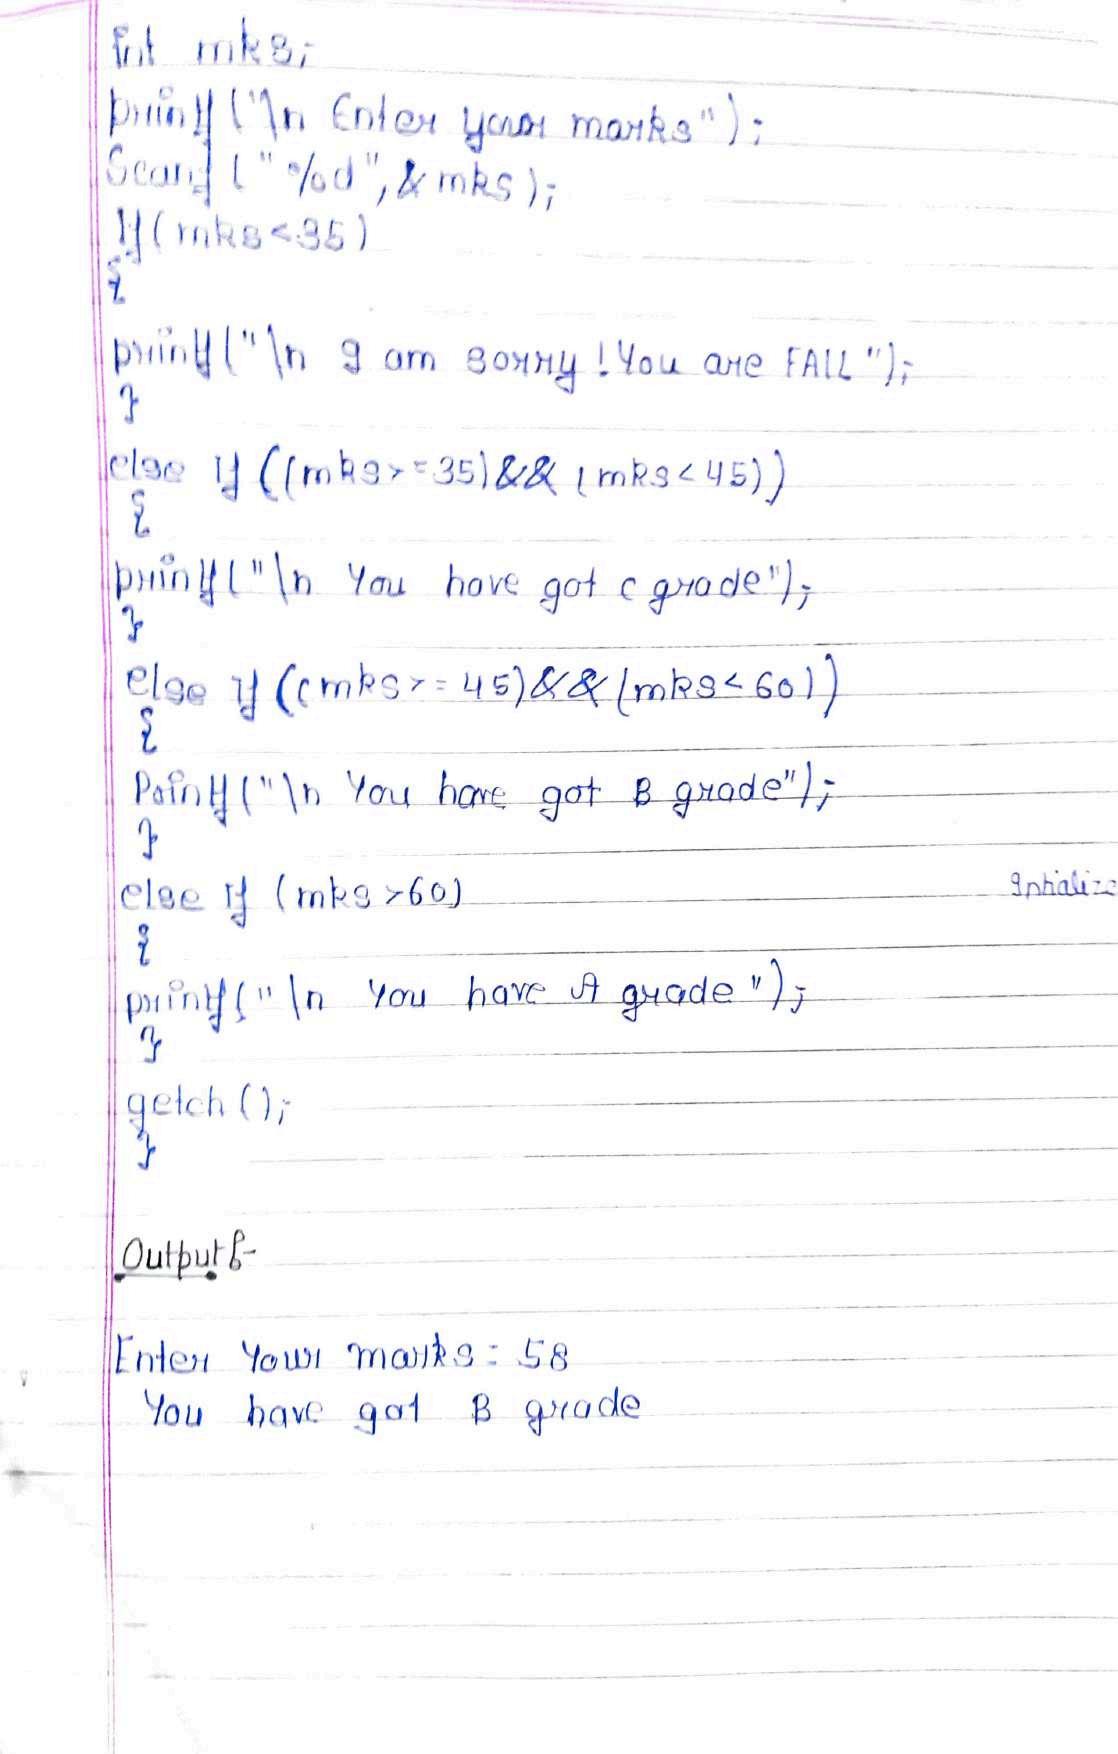 int mks;
printf("\n Enter your marks");
Scanf ("%d",&mks);
If(mks<35)
{
printf("\n I am sorry!You are FAIL");
}
else if ((mks>=35)&&(mks<45))
{
printf("\n You have got C grade");
}
else if ((mks>=45)&&(mks<60))
{
Printf("\n You have got B grade");
}
else if (mks>60)
Intialize
{
printf("\n You have A grade");
}
getch();
}
Output:-
Enter Your marks: 58
You have got B grade